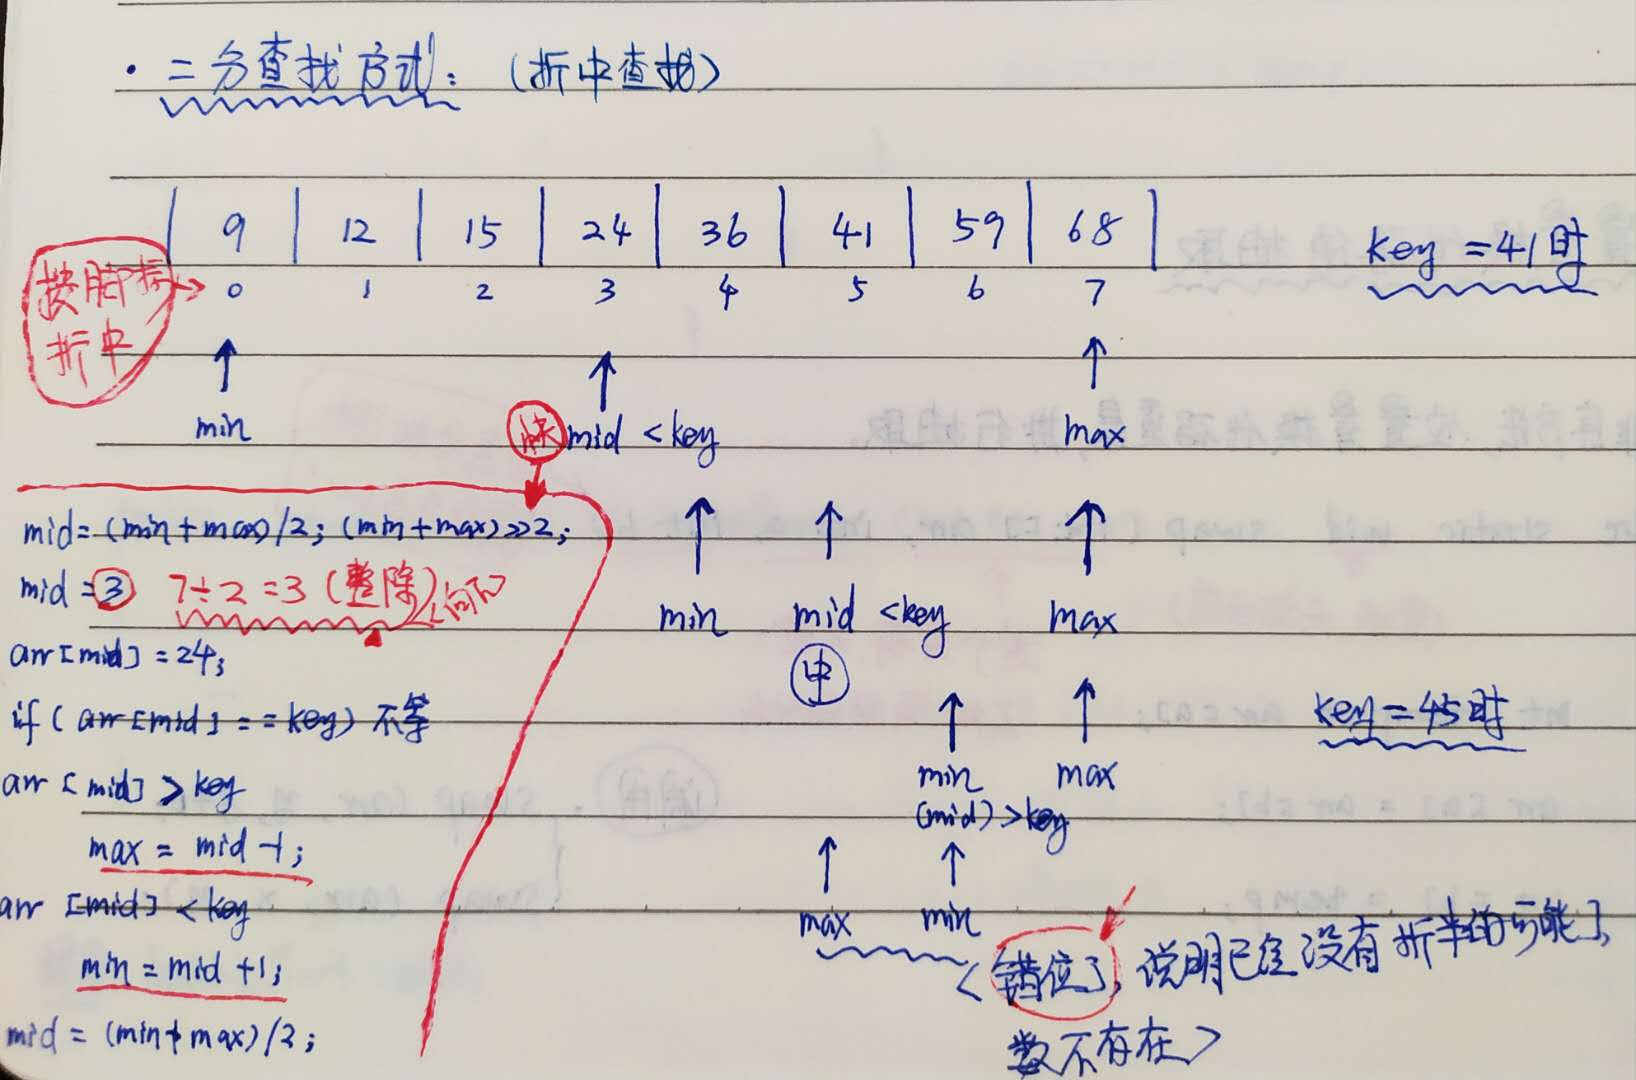 · 二分查找方式：（折中查找）
9 12 15 24 36 41 59 68
key =41时
按脚标
折中
0 1 2 3 4 5 6 7
min
快 mid <key
max
mid=(min+max)/2; (min+max)>>2;
mid=3 7÷2=3（整除）向下
arr[mid]=24;
if(arr[mid]==key) 不等
arr[mid]>key
max = mid-1;
arr [mid] <key
min=mid+1;
mid = (min+max)/2;
min mid <key max
中
key=45时
min max
(mid)>key
max min
<错位了，说明已经没有折半的可能了，
数不存在>